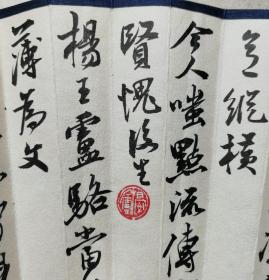 意縱横
今人嗤點流傳
賢愧後生
楊王盧駱當
薄為文